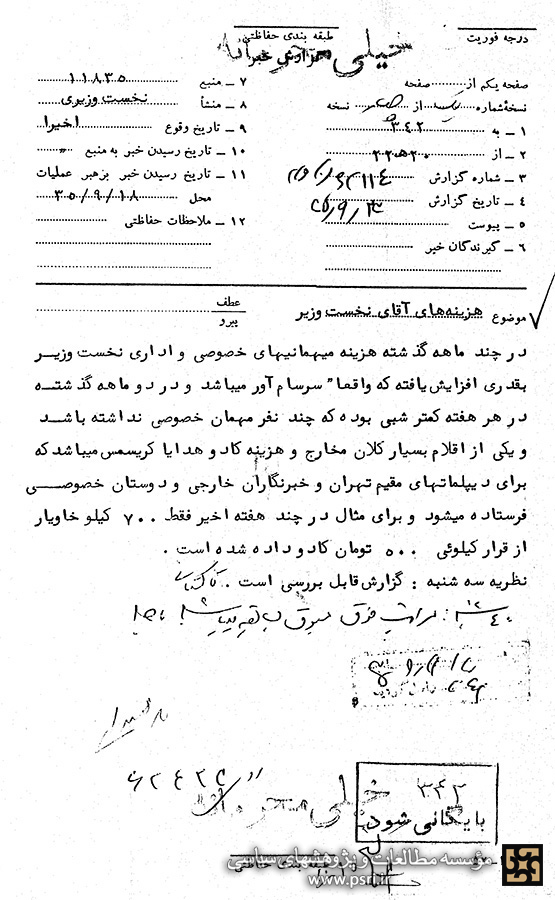 درجه فوریت
طبقه بندی حفاظتی
خیلی محرمانه
گزارش خبر
صفحه یکم از صفحه
نسخه شماره یک از نسخه
۱ ـ به ۳۴۲
۲ ـ از ۲۰ ه ۲۲
۳ ـ شماره گزارش
۴ ـ تاریخ گزارش
۵ ـ پیوست
۶ ـ گیرندگان خبر
۷ ـ منبع ۱۱۸۳۵
۸ ـ منشأ نخست وزیری
۹ ـ تاریخ وقوع اخیرا
۱۰ ـ تاریخ رسیدن خبر به منبع "
۱۱ ـ تاریخ رسیدن خبر برهبر عملیات
محل ۳۵/۹/۱۸
۱۲ ـ ملاحظات حفاظتی
موضوع هزینه‌های آقای نخست وزیر
عطف
پیرو
در چند ماهه گذشته هزینه میهمانیهای خصوصی و اداری نخست وزیر
بقدری افزایش یافته که واقعا" سرسام آور میباشد و در دو ماهه گذشته
در هر هفته کمتر شبی بوده که چند نفر مهمان خصوصی نداشته باشد
و یکی از اقلام بسیار کلان مخارج و هزینه کادو و هدایا کریسمس میباشد که
برای دیپلماتهای مقیم تهران و خبرنگاران خارجی و دوستان خصوصی
فرستاده میشود و برای مثال در چند هفته اخیر فقط ۷۰۰ کیلو خاویار
از قرار کیلوئی ۵۰۰ تومان کادو داده شده است .
نظریه سه شنبه : گزارش قابل بررسی است .
خیلی محرمانه
۳۴۲
بایگانی شود
طبقه بندی حفاظتی
مؤسسه مطالعات و پژوهشهای سیاسی
www.psri.ir